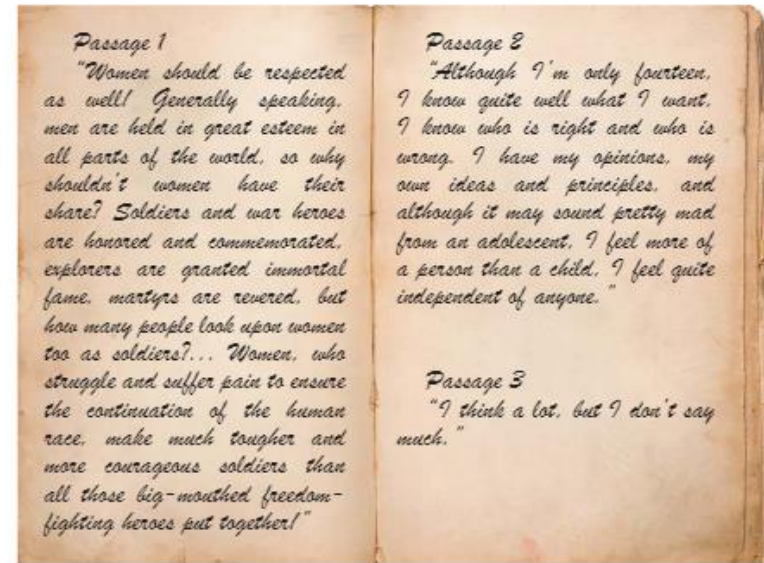 Passage 1
"Women should be respected
as well! Generally speaking,
men are held in great esteem in
all parts of the world, so why
shouldn't women have their
share? Soldiers and war heroes
are honored and commemorated,
explorers are granted immortal
fame, martyrs are revered, but
how many people look upon women
too as soldiers?... Women, who
struggle and suffer pain to ensure
the continuation of the human
race, make much tougher and
more courageous soldiers than
all those big-mouthed freedom-
fighting heroes put together!"
Passage 2
"Although I'm only fourteen,
I know quite well what I want,
I know who is right and who is
wrong. I have my opinions, my
own ideas and principles, and
although it may sound pretty mad
from an adolescent, I feel more of
a person than a child, I feel quite
independent of anyone."
Passage 3
"I think a lot, but I don't say
much."